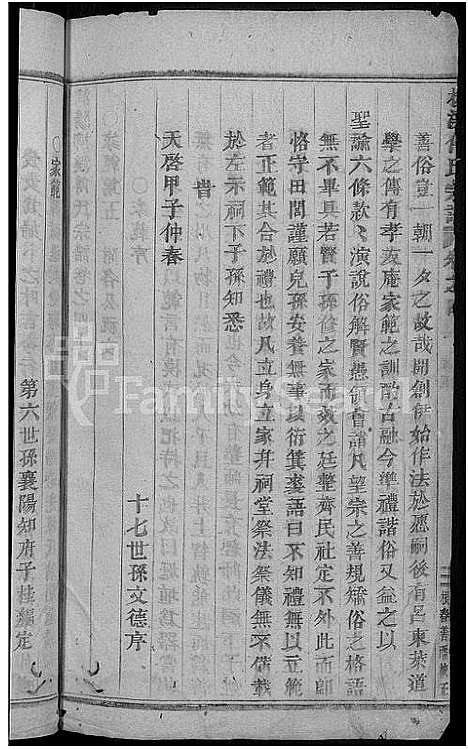 善俗豈一朝一夕之故哉開創伊始作法於
嗣後有呂東萊道
學之傳有孝友庵家範之訓酌古融今準禮諧俗又益之以
聖諭六條款款演說俗解賢愚領會諸凡望宗之善規矯俗之格語
無不畢具若賢子孫修之家而效之廷整齊民社定不外此而卽
恪守田間謹願兒孫安養無事以衍箕裘語曰不知禮無以立範
者正範其合於禮也故凡立身立家并祠堂祭法祭儀無不備載
於左示祠下子孫知悉
旹
天啓甲子仲春
十七世孫文德序
○家範
第六世孫襄陽知府子桂纂定
FamilySearch